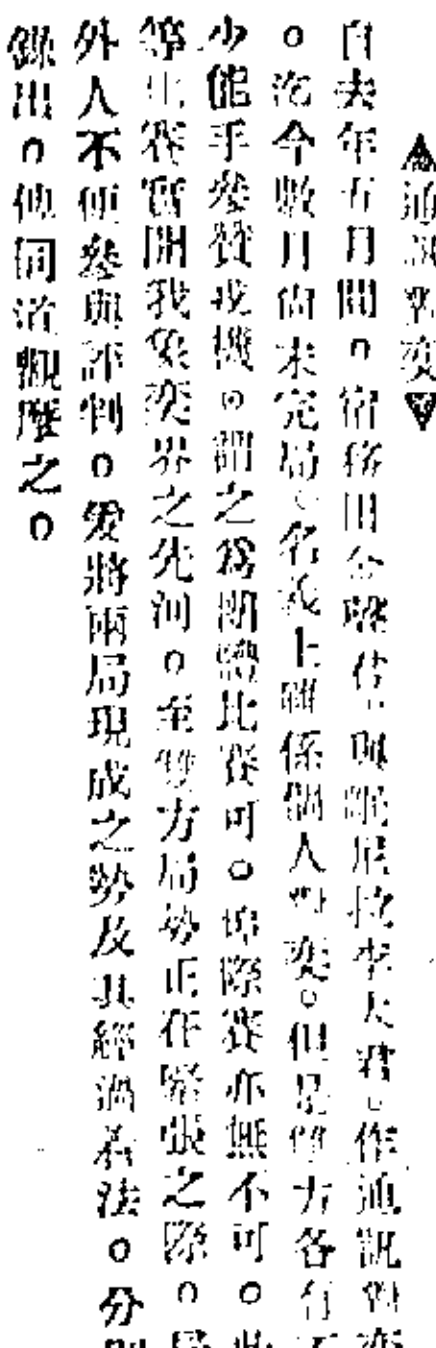 ▲通訊對奕▼
自去年五月間。宿務田金聲君。與岷尼拉李天君。作通訊對奕
。迄今數月尚未完局。名義上雖係個人對奕。但是雙方各有不
少能手參贊戎機。謂之為團體比賽可。埠際賽亦無不可。此
等比賽實開我象奕界之先河。至雙方局勢正在緊張之際。局
外人不便參與評判。爰將兩局現成之勢及其經過着法。分別
錄出。俾同道觀摩之。